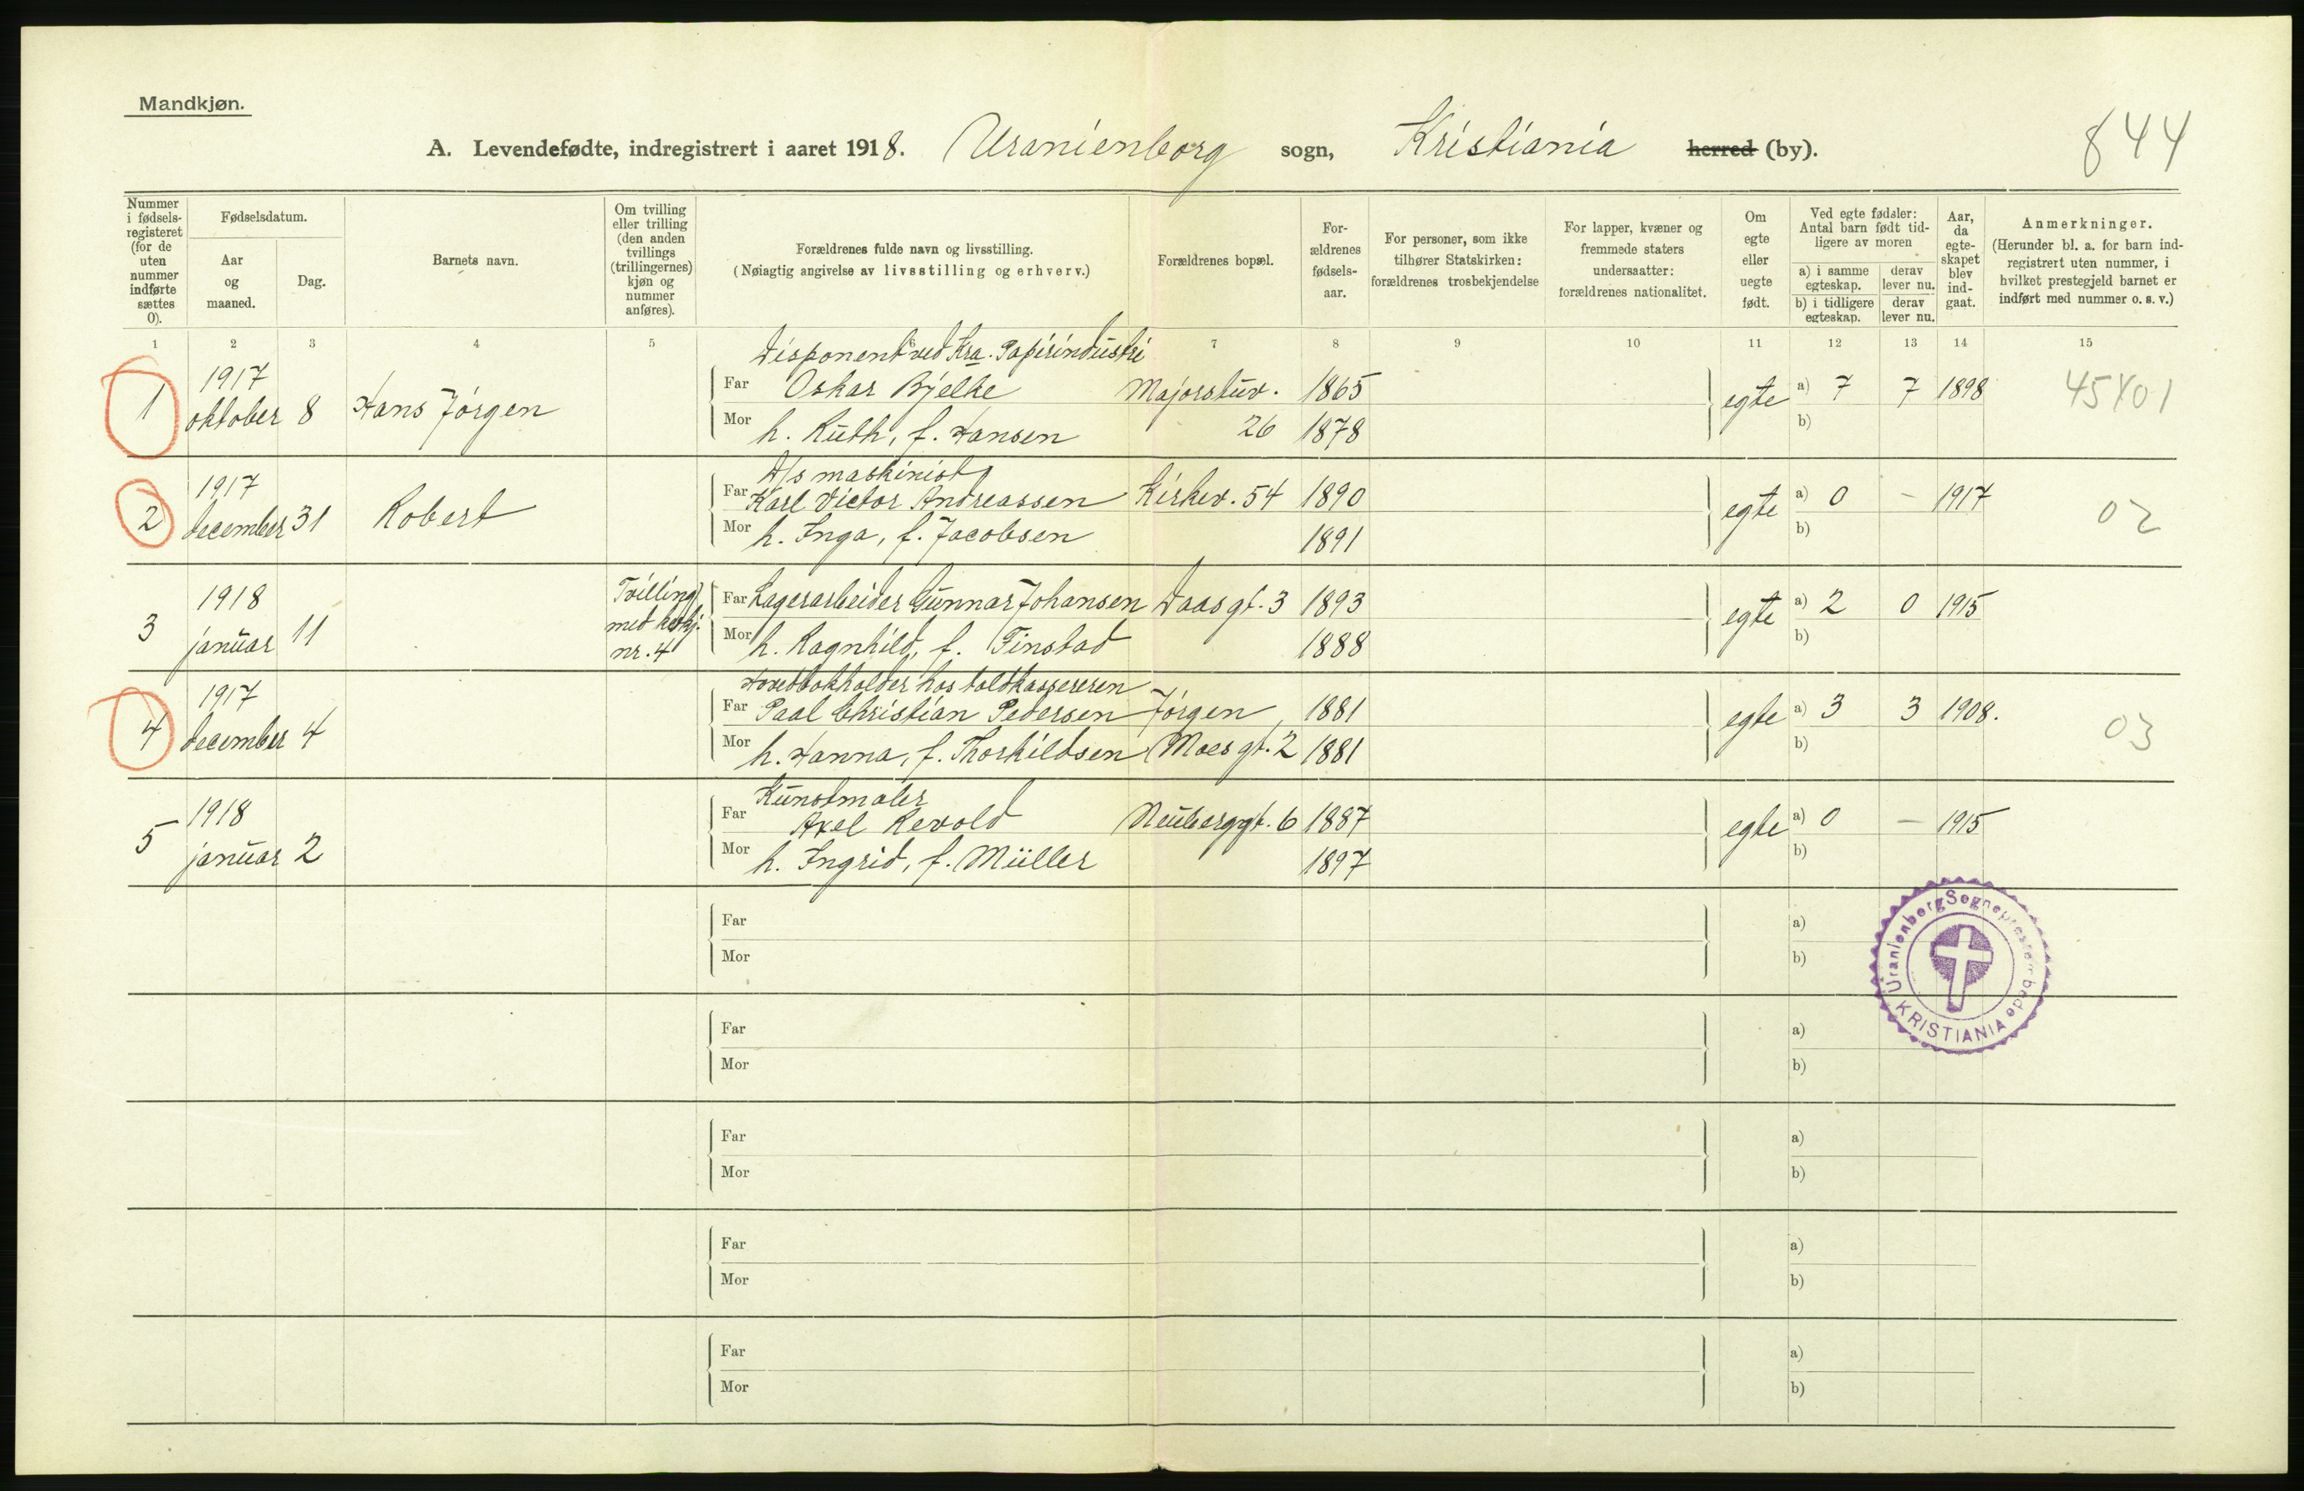 Mandkjøn.
A. Levendefødte, indregistrert i aaret 1918. Uranienborg sogn, Kristiania herred (by).
844
Nummer i fødsels-registeret (for de uten nummer indførte sættes 0).
Fødselsdatum.
Aar og maaned.
Dag.
Barnets navn.
Om tvilling eller trilling (den anden tvillings (trillingernes) kjøn og nummer anføres).
Forældrenes fulde navn og livsstilling.
(Nøiagtig angivelse av livsstilling og erhverv.)
Forældrenes bopæl.
For-ældrenes fødsels-aar.
For personer, som ikke tilhører Statskirken: forældrenes trosbekjendelse
For lapper, kvæner og fremmede staters undersaatter: forældrenes nationalitet.
Om egte eller uegte født.
Ved egte fødsler: Antal barn født tid-ligere av moren
a) i samme egteskap.
derav lever nu.
b) i tidligere egteskap.
derav lever nu.
Aar, da egte-skapet blev ind-gaat.
Anmerkninger.
(Herunder bl. a. for barn ind-registrert uten nummer, i hvilket prestegjeld barnet er indført med nummer o. s. v.)
1 2 3 4 5 7 8 9 10 11 12 13 14 15
Disponent ved Kra. Papirindustri
1 1917 oktober 8 Hans Jörgen Far Oskar Bjelke Majorstuv. 1865 egte a) 7 7 1898 45401
Mor h. Ruth, f. Hansen 26 1878 b)
D/s maskinist
2 1917 december 31 Robert Far Karl Victor Andreassen Kirkev. 54 1890 egte a) 0 – 1917 02
Mor h. Inga, f. Jacobsen 1891 b)
3 1918 januar 11 Tvilling med kvkj. nr. 4 Far Lagerarbeider Gunnar Johansen Daasgt. 3 1893 egte a) 2 0 1915
Mor h. Ragnhild, f. Finstad 1888 b)
Hovedbokholder hos toldkassereren
4 1917 december 4 Far Paal Christian Pedersen Jörgen 1881 egte a) 3 3 1908. 03
Mor h. Hanna, f. Thorkildsen Moes gt. 2 1881 b)
Kunstmaler
5 1918 januar 2 Far Axel Revold Neuberggt. 6 1887 egte a) 0 – 1915
Mor h. Ingrid, f. Müller 1897 b)
Far a)
Mor b)
Uranienborg Sogneprestembede
KRISTIANIA
Far a)
Mor b)
Far a)
Mor b)
Far a)
Mor b)
Far a)
Mor b)